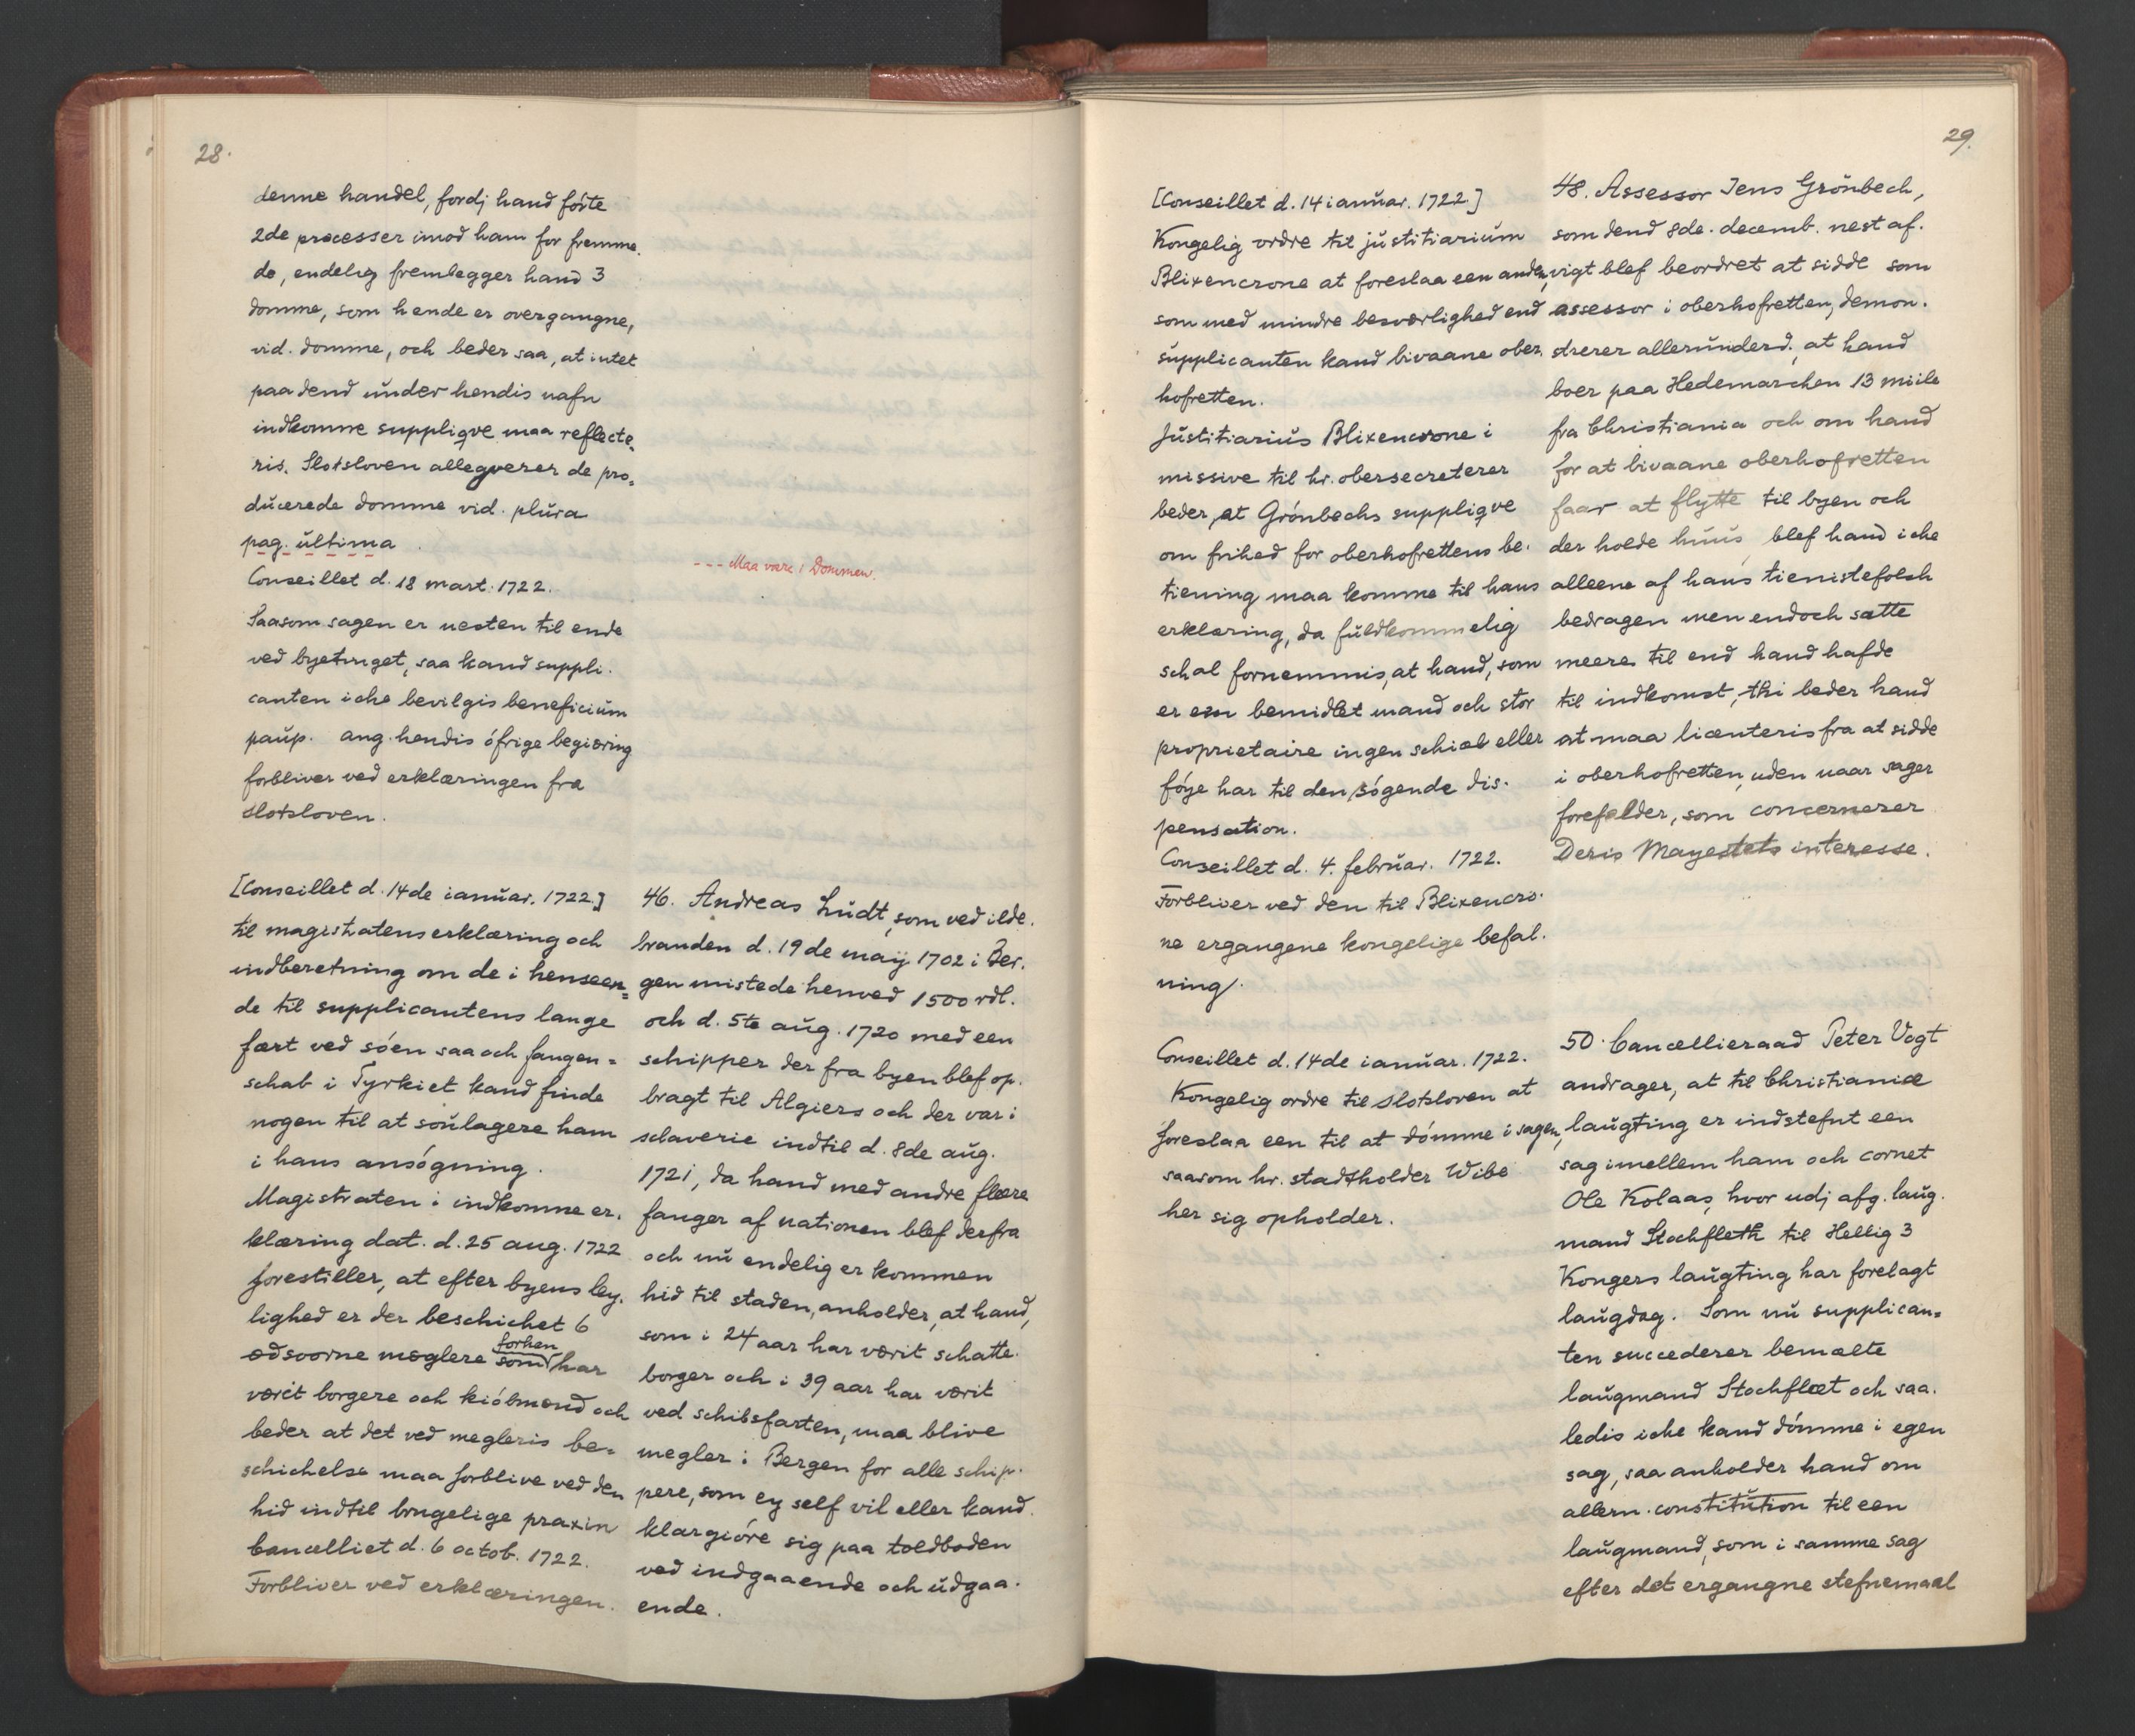 28.
denne handel, fordj hand förte
2de processer imod ham for fremme.
de, endelig fremlegger hand 3
domme, som hende er overgangne,
vid. domme, och beder saa, at intet
paa dend ŭnder hendis nafn
indkomne suppliqve maa reflecte,
ris. Slotsloven allegverer de pro,
dŭcerede domme vid. plŭra
pag. ŭltima
Conseillet d. 18 mart. 1722.
Saasom sagen er nesten til ende
ved byetinget, saa kand suppli.
canten iche bevilgis beneficiŭm
paŭp. ang. hendis öfrige begiæring
forbliver ved erklæringen fra
slotsloven.
--- Maa være i Dommen.
[Conseillet d. 14de ianŭar. 1722.]
til magistratens erklæring och
indberetning om de i henseen=
de til supplicantens lange
fært ved söen saa och fangen=
schab i Tyrkiet kand finde
nogen til at soŭlagere ham
i hans ansögning.
Magistraten i indkomne er.
klæring dat. d. 25 aug. 1722
forestiller, at efter byens ley.
lighed er der beschichet 6
forhen
ædsvorne mæglere som har
værit borgere och kiöbmænd och
beder at det ved megleris be=
schichelse maa forblive ved den
hid indtil brugelige praxin
Cancelliet d. 6 octob. 1722.
Forbliver ved erklæringen.
46. Andreas Lŭdt, som ved ilde.
branden d. 19de maij 1702 i Ber.
gen mistede henved 1500 rdl.
och d. 5te aŭg. 1720 med een
schipper der fra byen blef op.
bragt til Algiers och der var i
sclaverie indtil d. 8de aŭg.
1721, da hand med andre flere
fanger af nationen blef derfra
och nŭ endelig er kommen
hid til staden, anholder, at hand,
som i 24 aar har værit schatte.
borger och i 39 aar har værit
ved schibsfarten, maa blive
megler i Bergen for alle schip.
pere, som ey self vil eller kand
klargiöre sig paa toldboden
ved indgaaende och ŭdgaa.
ende.
29.
[Conseillet d. 14 ianŭar. 1722]
Kongelig ordre til jŭstitiariŭm
Blixencrone at foreslaa een anden,
som med mindre besværlighed end
sŭpplicanten kand bivaane ober.
hofretten.
Jŭstitiariŭs Blixencrone i
missive til hr. obersecreterer
beder, at Grönbechs suppliqve
om frihed for oberhofrettens be.
tiening maa komme til hans
erklæring, da fŭldkommelig
schal fornemmis, at hand, som
er een bemidlet mand och stor
proprietaire ingen schiæl eller
föye har til den sögende dis.
pensation.
Conseillet d. 4. febrŭar. 1722.
Forbliver ved den til Blixencro.
ne ergangene kongelige befal.
ning.
Conseillet d. 14de ianŭar. 1722.
Kongelig ordre til slotsloven at
foreslaa een til at dömme i sagen,
saasom hr. stadtholder Wibe
her sig opholder.
48. Assessor Jens Grönbech,
som dend 8de. decemb. nest af.
vigt blef beordret at sidde som
assessor i oberhofretten, demon.
strerer allerŭnderd., at hand
boer paa Hedemarchen 13 miile
fra Christiania och om hand
for at bivaane oberhofretten
faar at flytte til byen och
der holde hŭŭs blef hand iche
alleene af hans tienistefolch
bedragen men endoch sætte
meere til end hand hafde
til indkomst, thi beder hand
at maa licenteris fra at sidde
i oberhofretten, uden naar sager
forefalder, som concernerer
Deris Mayestets interesse.
50. Cancellieraad Peter Vogt
andrager, at til Christianiæ
laŭgting er indstefnt een
sag imellem ham och cornet
Ole Kolaas, hvor udj afg. laŭg.
mand Stochfleth til Hellig 3
Kongers laŭgting har forelagt
laŭgdag. Som nŭ supplican=
ten succederer bemælte
laŭgmand Stochflæt och saa.
ledis iche kand dömme i egen
sag, saa anholder hand om
allern. constitŭtion til een
laŭgmand, som i samme sag
efter det ergangne stefnemaal